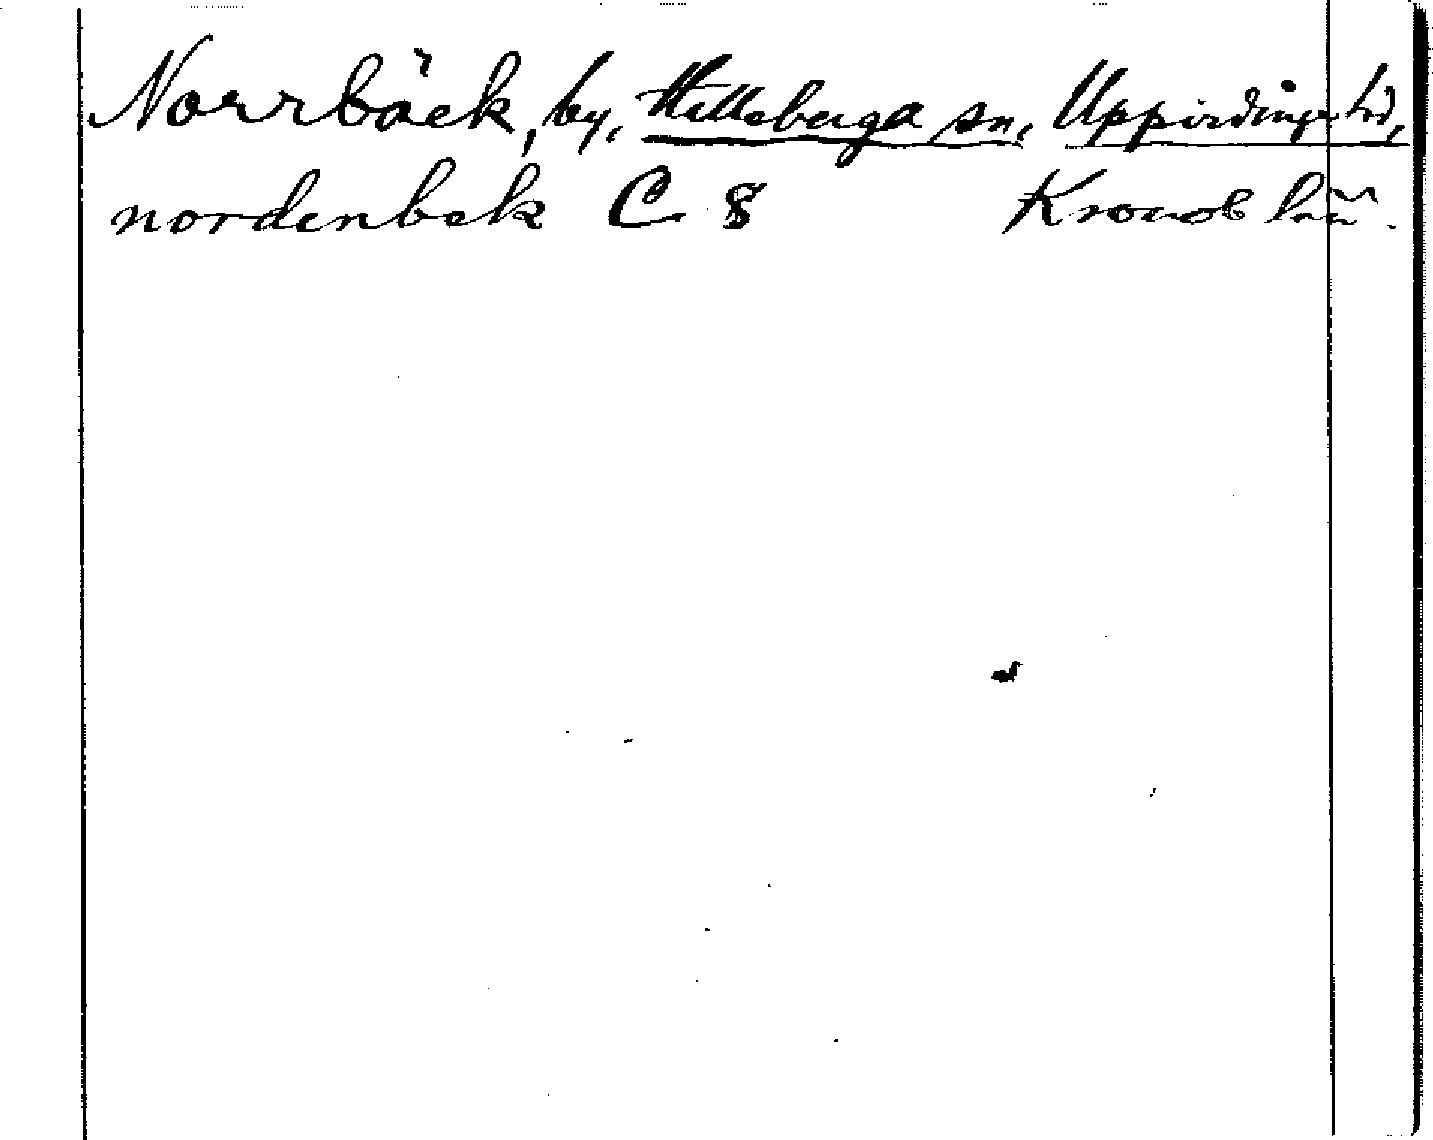 Norrbäck, by, Hälleberga sn, Uppvidinge hd,
nordenbek C 8 Kronob län.